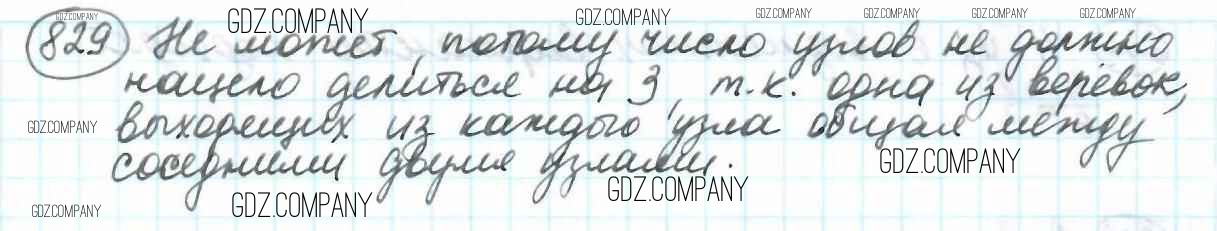 GDZ.COMPANY GDZ.COMPANY GDZ.COMPANY GDZ.COMPANY GDZ.COMPANY GDZ.COMPANY GDZ.COMPANY
829 Не может, потому число узлов не должно
нацело делиться на 3, т.к. одна из верёвок,
GDZ.COMPANY выходящих из каждого узла общая между
соседними двумя узлами. GDZ.COMPANY
GDZ.COMPANY GDZ.COMPANY GDZ.COMPANY